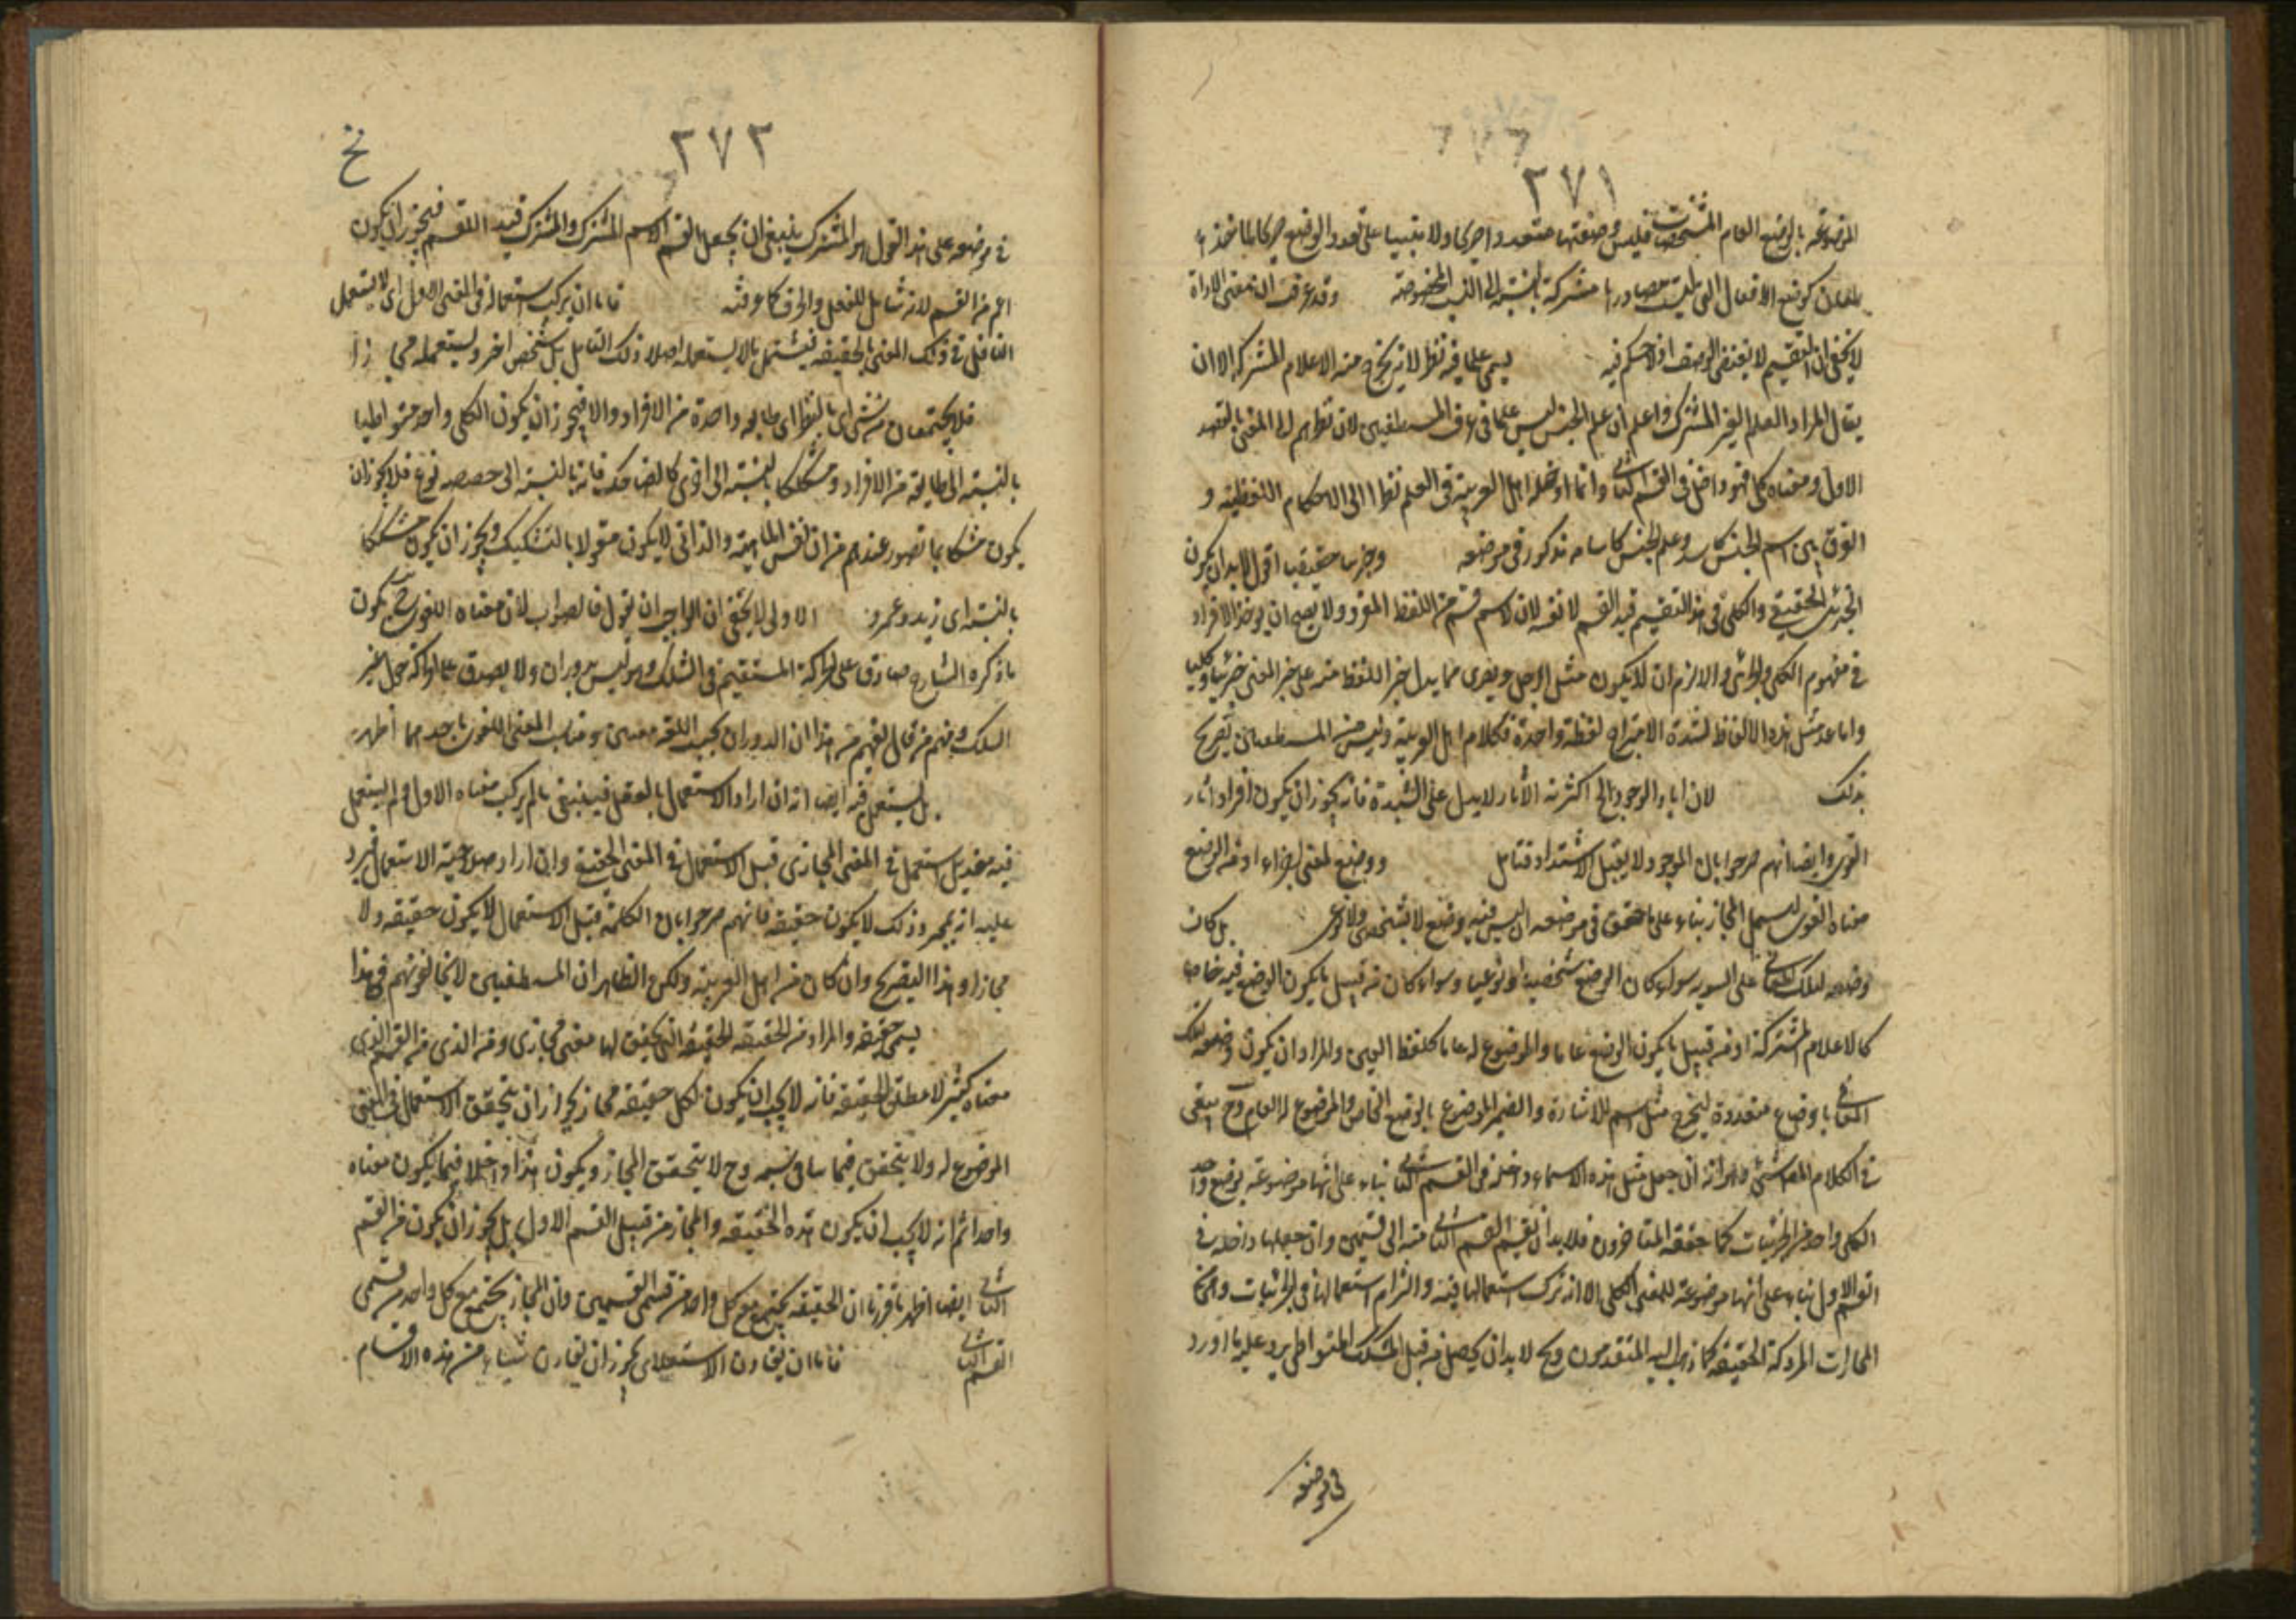 ٢٧١
الموضوعة بالوضع العام للمشخصات فليس وضعها متعدد
بلعلن كوضع الافعال التى ليست مصادرها مشتركة بالنسبة الى النسب المخصوصة وقد عرفت ان معنى الاداة
لا يخفى ان التقسيم لا يقتضى الوصف اذ لا حكم فيه يسمى علما فيه نظر لانه يخرج منه الاعلام المشتركة الا ان
يقال المراد العلم الغير المشترك واعلم ان علم الجنس ليس علما فى عرف المنطقيين لان نظرهم الى المعنى بالقصد
الاول ومعناه كلى فهو داخل فى القسم الثانى وانما ادخله اهل العربية فى العلم نظرا الى الاحكام اللفظية و
الفرق بين اسم الجنس كاسد وعلم الجنس كاسامه مذكور فى موضعه وجزئيا حقيقيا اقول لابد ان يكون
الجزئى الحقيقى والكلى فى هذا التقسيم قيد القسم لا نفسه لان الاسم قسم من اللفظ المفرد ولا يصح ان يوخذ الافراد
فى مفهوم الكلى والجزئى والا لزم ان لا يكون مثل الرجل وبصرى مما يدل جزء اللفظ منه على جزء المعنى جزئيا وكليا
واما عد مثل هذه الالفاظ لشدة الامتزاج لفظة واحدة فكلام اهل العربية وليس من المنطقيين تصريح
بذلك لان اباء الوجود الخ اكثرية الآثار لا يدل على الشدة فانه يجوز ان يكون افراد آثار
القوى وايضا انهم صرحوا بان الوجود لا يقبل الاشتداد فتامل ووضع لمعنى بازاء او فه الوضع
معناه اللغوى ليشمل المجاز بناء على ما حقق فى موضعه ان ليس فيه وضع لا شخصى ولا نوعى بل كان
وضعه لتلك المعانى على السوية سواء كان الوضع شخصيا او نوعيا وسواء كان من قبيل ما يكون الوضع فيه خاصا
كالاعلام المشتركة او من قبيل ما يكون الوضع عاما والموضوع له عاما كلفظ العين والمراد ان يكون وضعه لتلك
المعانى باوضاع متعددة ليخرج مثل اسم الاشارة والضمير الموضوع بالوضع الخاص والموضوع له العام وح يبقى
فى الكلام المناقشة وهو انه ان جعل مثل هذه الاسماء داخلة فى القسم الثانى بناء على انها موضوعة بوضع واحد
لكل واحد من الجزئيات كما حققه المتاخرون فلا بد ان يقسم القسم الثانى منه الى قسمين وان جعلها داخلة فى
القسم الاول بناء على انها موضوعة للمعنى الكلى الا انه ترك استعمالها فيه والتزام استعمالها فى الجزئيات
المجازات المتروكة الحقيقة كما ذهب اليه المتقدمون وح لابد ان يحصل من قبيل المشكك والمتواطى يرد عليه ما اورد
فى موضعه
٢٧٢
نخ
فى موضعه على هذا القول هو المشترك ينبغى ان يجعل القسم الاسم المشترك والمشترك قيد القسم فيجوز ان يكون
اعم من القسم لانه شامل للفعل والحرف كما عرفته فاما ان يترك استعماله فى المعنى الاول اى لا يستعمل
الناقل فى ذلك المعنى بالحقيقة فيشتمل ما لا يستعمله اصلا ذلك الناقل بل شخص اخر ويستعمله مجازا
فلا يجتمعان من شئ اى بالنظر الى طايفه واحدة من الافراد والا فيجوز ان يكون الكلى واحد متواطيا
بالنسبة الى طايفة من الافراد ومشككا بالنسبة الى اخرى كالضاحك فانه بالنسبة الى حصصه نوع فلا يجوز ان
يكون مشككا بما تصور عندهم من ان نفس الماهية والذاتى لا يكون مقولا بالتشكيك ويجوز ان يكون مشككا
بالنسبة الى زيد وعمرو الاولى لا يخفى ان الواجب ان يقول فالصواب لان معناه اللغوى يكون
ما ذكره الشارح صادق على الحركة المستقيمة فى السكك وهو ليس بدوران ولا يصدق على حركة حول غير
السكك ومنهم من قال الفهم من هذا ان الدوران بحسب اللغة معنيين ومناسب المعنى اللغوى باحدهما اظهر
بل يستعمل فيه ايضا انه ان اراد الاستعمال بالفعل فينبغى ما لم يترك معناه الاول ولم يستعمل
فيه بعد بل استعمل فى المعنى المجازى قبل الاستعمال فى المعنى الحقيقى وان اراد صلاحية الاستعمال فيرد
عليه انه بمجرد ذلك لا يكون حقيقة فانهم صرحوا بان الكلمة قبل الاستعمال لا يكون حقيقه ولا
مجازا وهذا التصريح وان كان من اهل العربية ولكن الظاهر ان المنطقيين لا يخالفونهم فى هذا
يسمى حقيقة والمراد من الحقيقة الحقيقة التى يتحقق لها معنى مجازى وفه الذى من القسم الذى
معناه كثير لا مطلق الحقيقة فانه لا يجب ان يكون لكل حقيقة مجاز بجواز ان يتحقق الاستعمال فى المعنى
الموضوع له ولا يتحقق فيما يناسبه وح لا يتحقق المجاز ويكون هذا داخلا فيما يكون معناه
واحدا ثم انه لا يجب ان يكون هذه الحقيقة والمجاز من قبيل القسم الاول بل يجوز ان يكون من القسم
الثانى ايضا اظهر ما قررنا ان الحقيقة يجتمع مع كل واحد من قسمى القسمين وان المجاز يجتمع مع كل واحد من قسمى
القسم الثانى فاما ان يقارن الاستعلاء يجوز ان يقارن شيئا من هذه الاقسام